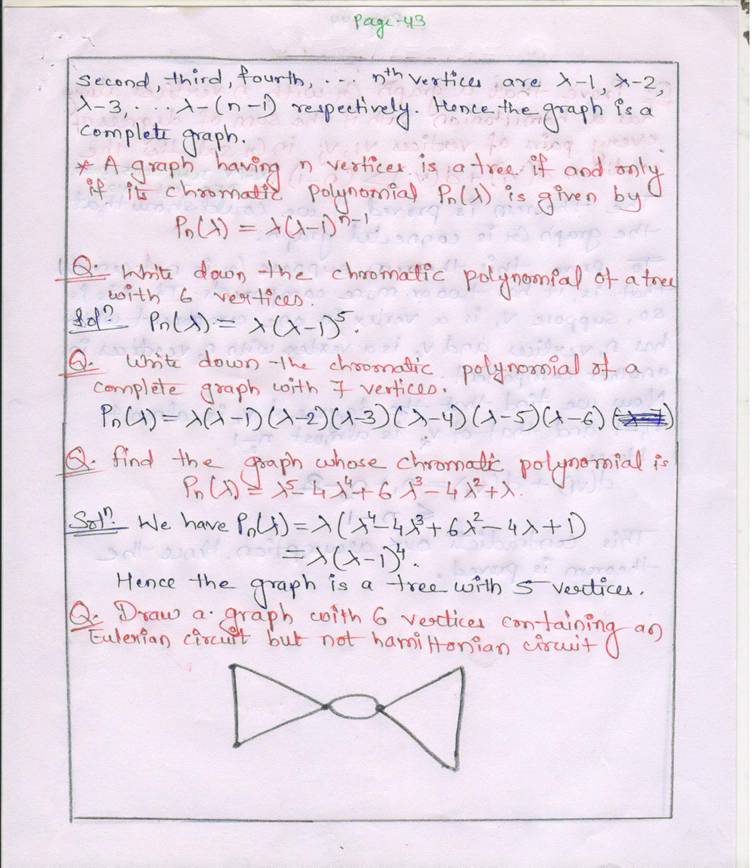 Page-43
second, third, fourth, ... nth vertices are λ-1, λ-2,
λ-3 ... λ-(n-1) respectively. Hence the graph is a
complete graph.
* A graph having n vertices is a tree if and only
if its chromatic polynomial Pn(λ) is given by
Pn(λ) = λ(λ-1)^n-1
Q. Write down the chromatic polynomial of a tree
with 6 vertices.
Solⁿ. Pn(λ) = λ(λ-1)⁵.
Q. Write down the chromatic polynomial of a
complete graph with 7 vertices.
Pn(λ) = λ(λ-1)(λ-2)(λ-3)(λ-4)(λ-5)(λ-6)
Q. find the graph whose chromatic polynomial is
Pn(λ) = λ⁵-4λ⁴+6λ³-4λ²+λ.
Solⁿ. We have Pn(λ) = λ(λ⁴-4λ³+6λ²-4λ+1)
= λ(λ-1)⁴.
Hence the graph is a tree with 5 vertices.
Q. Draw a graph with 6 vertices containing an
Eulerian circuit but not hamiltonian circuit